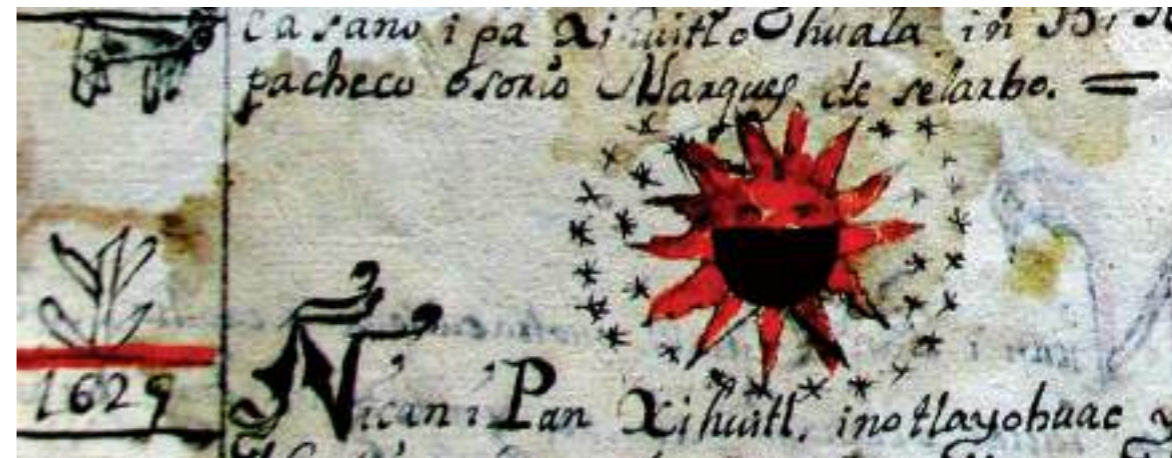 Casano i pa Xihuitl ohuala in
pacheco osorio Marques de selarbo. =
1629
Nican i Pan Xihuitl. inotlayohuac